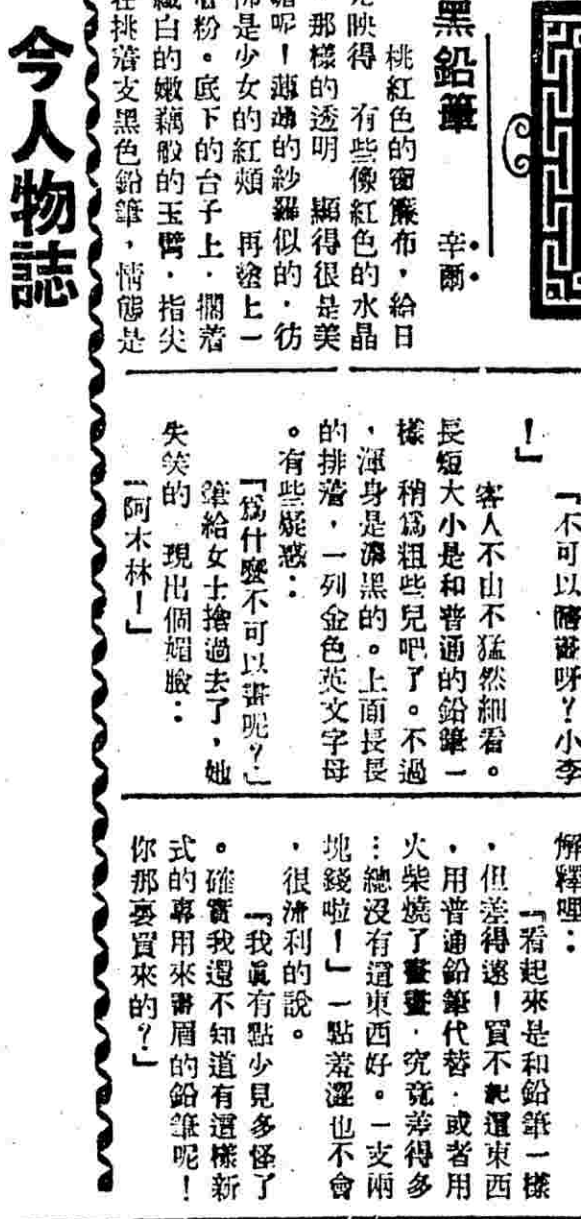 黑鉛筆
辛爾
桃紅色的窗簾布，給日
光映得　有些像紅色的水晶
那樣的透明　顯得很是美
呢！薄薄的紗羅似的．彷
是少女的紅頰　再塗上一
粉。底下的台子上．擱着
白的嫩藕般的玉臂．指尖
在挑着支黑色鉛筆，情態是
「不可以隨畫呀？小李
！」
客人不由不猛然細看。
長短大小是和普通的鉛筆一
樣　稍爲粗些兒吧了。不過
，渾身是漆黑的。上面長長
的排着，一列金色英文字母
。有些疑惑：
「爲什麼不可以畫呢？」
筆給女士搶過去了，她
失笑的　現出個媚臉：
「阿木林！」
解釋哩：
「看起來是和鉛筆一樣
，但差得遠！買不起這東西
，用普通鉛筆代替．或者用
火柴燒了畫畫．究竟差得多
…總沒有這東西好。一支兩
塊錢啦！」一點羞澀也不會
，很流利的說。
「我眞有點少見多怪了
。確實我還不知道有這樣新
式的專用來畫眉的鉛筆呢！
你那裏買來的？」
今人物誌